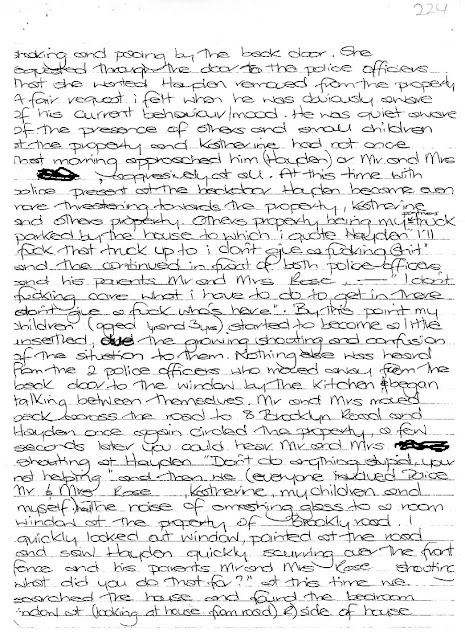 224
shaking and pacing by the back door. She
requested through the door to the police officers
that she wanted Hayden removed from the property
A fair request i felt when he was obviously aware
of his current behaviour/mood. He was quiet aware
of the presence of others and small children
at the property and Katherine had not once
that morning approached him (Hayden) or Mr and Mrs
, aggressively at all. At this time with
police present at the backdoor Hayden became even
more threatening towards the property, Katherine
and others property. Others property being my partners truck
parked by the house to which i quote Hayden "I'll
fuck that truck up to i don't give a fucking shit"
and the continued in front of both police officers
and his parents Mr and Mrs Rose, — "I don't
fucking care what i have to do to get in there
don't give a fuck who's here". By this point my
children (aged 4 and 3yrs) started to become a little
unsettled, due the growing shouting and confusion
of the situation to them. Nothing else was heard
from the 2 police officers who moved away from the
back door to the window by the kitchen & began
talking between themselves. Mr and Mrs moved
back across the road to 8 Brooklyn Road and
Hayden once again circled the property, a few
seconds later you could hear Mr and Mrs
shouting at Hayden "Don't do anything stupid, your
not helping" and then we (everyone involved Police
Mr & Mrs Rose Katherine, my children and
myself) the noise of smashing glass to a room
window at the property of Brookly road. I
quickly looked out window, pointed at the road
and saw Hayden quickly scurrying over the front
fence and his parents Mr and Mrs Rose shouting
what did you do that for?" at this time we
searched the house and found the bedroom
window at (looking at house from road) side of house